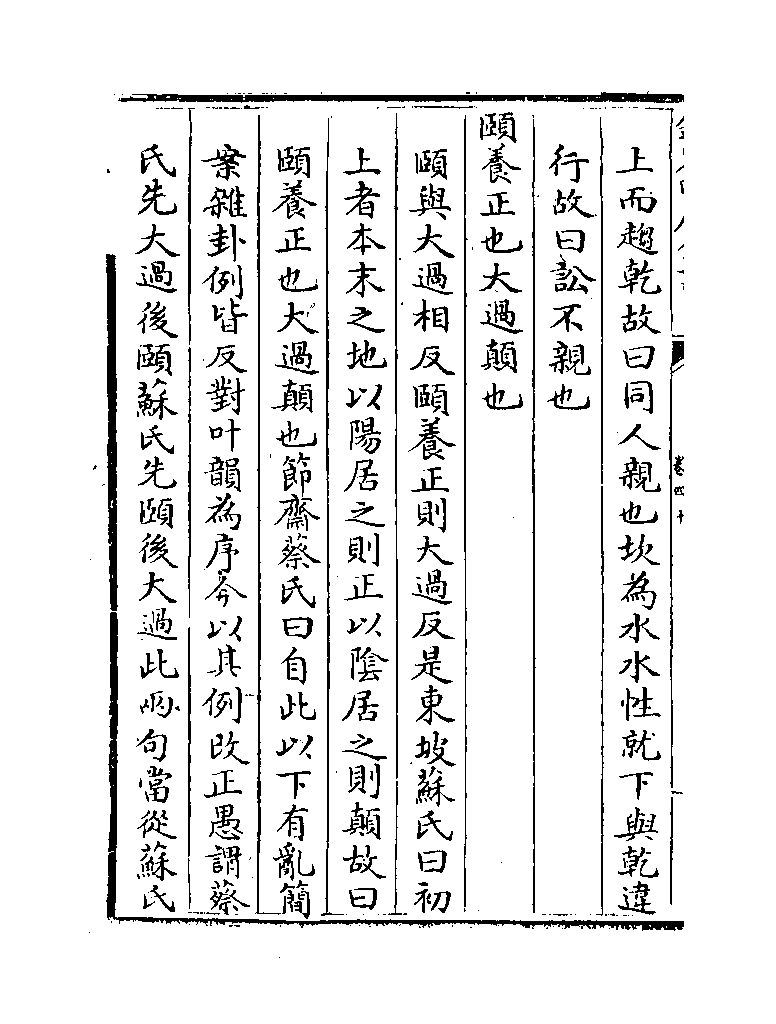 上而趨乾故曰同人親也坎為水水性就下與乾違
行故曰訟不親也
頤養正也大過顛也
頤與大過相反頤養正則大過反是東坡蘇氏曰初
上者本末之地以陽居之則正以陰居之則顛故曰
頤養正也大過顛也節齋蔡氏曰自此以下有亂簡
案雜卦例皆反對叶韻為序今以其例改正愚謂蔡
氏先大過後頤蘇氏先頤後大過此兩句當從蘇氏
卷四十